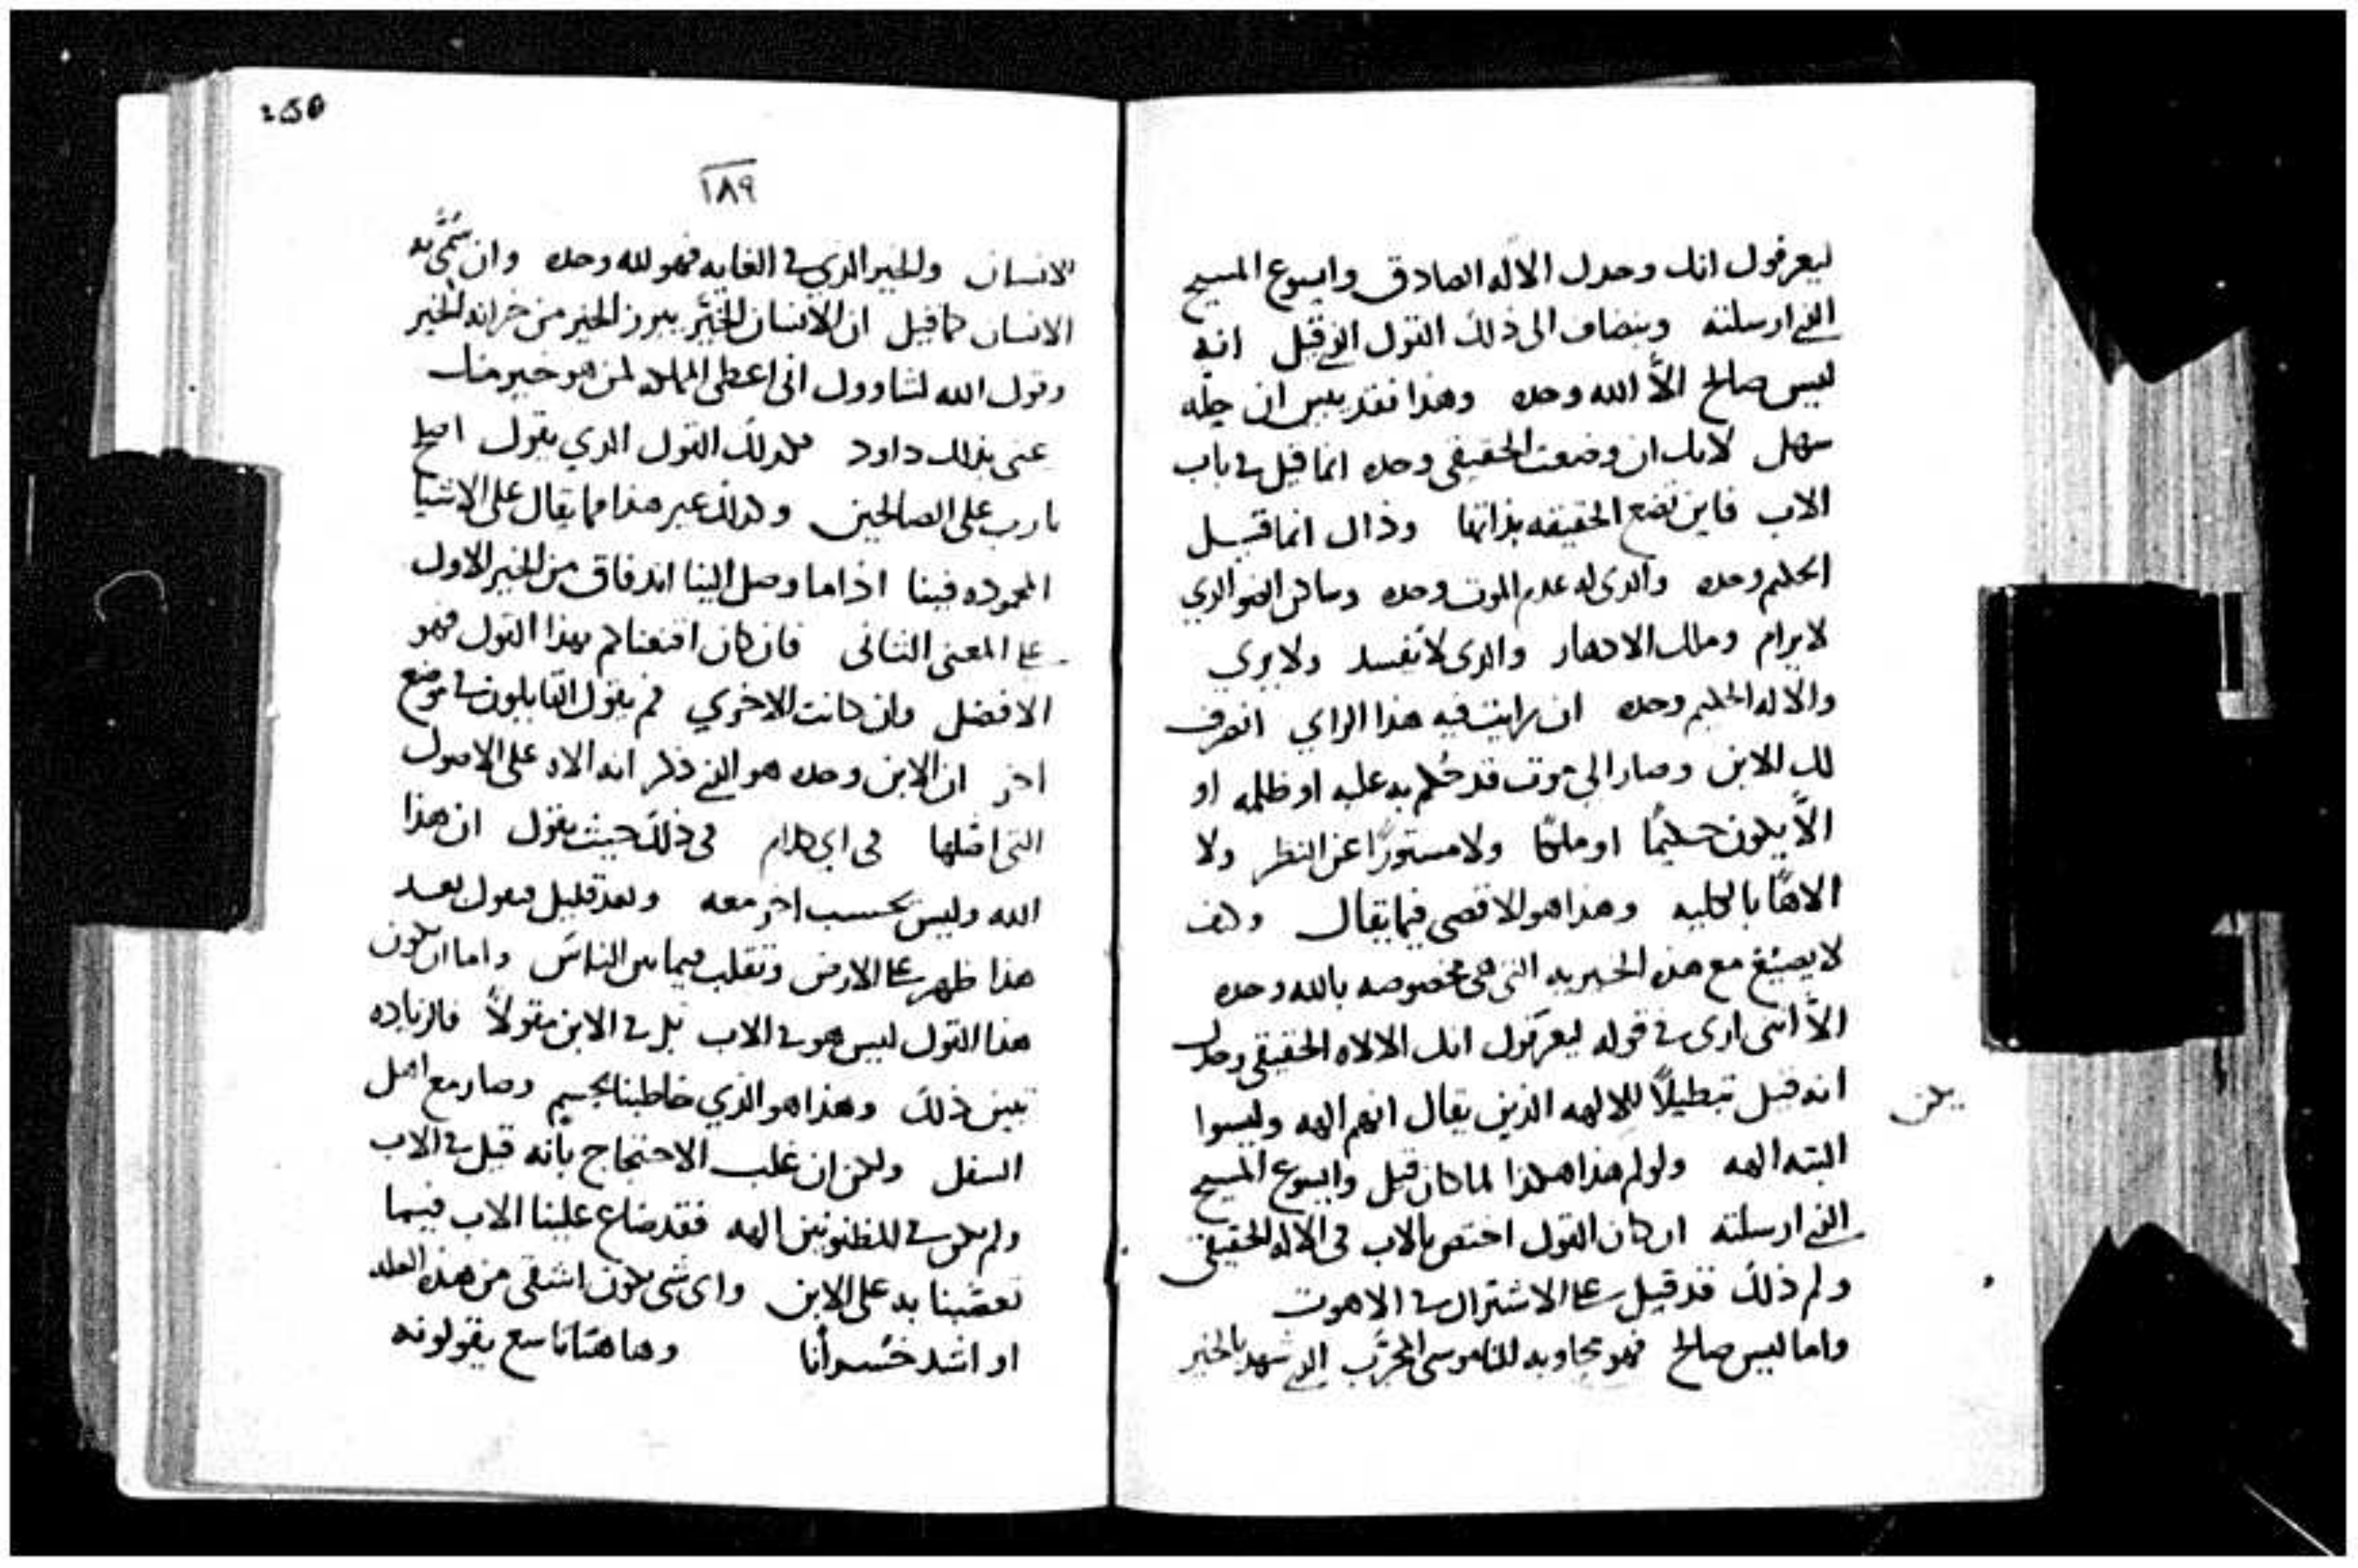 ليعرفوك انك وحدك الاله الصادق وايسوع المسيح
الذي ارسلته وينضاف الى ذلك القول الذي قيل انه
ليس صالح الاّ الله وحده وهذا فقد يبين ان حله
سهل لانك ان وضعت الحقيقي وحده انما قيل في باب
الاب فاين تضع الحقيقه بذاتها وذاك انما قيل
الحكيم وحده والدى له عدم الموت وحده وساكن الضو الدي
لا يرام وملك الادهار والدى لا يفسد ولا يري
والاله الحكيم وحده ان رايت فيه هذا الراي انصرف
لك الابن وصار الي موت قد حُكم به عليه او ظلمه او
الاّ يكون حكيمًا او ملكًا ولا مستورًا عن النظر ولا
الاهًا بالكليه وهذا هو الاقصى فيما يقال وكيف
لا يضيع مع هذه الخيريه التى هى مخصوصه بالله وحده
الاّ اننى ارى في قوله ليعرفوك انك الالاه الحقيقي وحدك
انه قيل تبطيلًا للالهه الذين يقال انهم الهه وليسوا
البته الهه ولو لم هذا هكذا لما كان قيل وايسوع المسيح
يكن
الذي ارسلته ان كان القول اختص بالاب في الاله الحقيقى
ولم ذلك قد قيل على الاشتراك في الاهوت
واما ليس صالح فهو مجاوبه للناموسى المجرّب الدي شهد بالخير
250
١٨٩
للانسان والخير الذي في الغايه فهو لله وحده وان سُمّي به
الانسان كما قيل ان الانسان الخيّر يبرز الخير من خزانه الخير
وقول الله لشاوول انى اعطى المملكه لمن هو خير منك
عنى بذلك داود وكذلك القول الدي يقول اصلح
يارب على الصالحين وكذلك غير هذا مما يقال على الاشيا
المحموده فينا اذا ما وصل الينا اندفاق من الخير الاول
على المعنى الثانى فان كان اقنعناكم بهذا القول فهو
الافضل وان كانت الاخري فبم يقول القايلون في موضع
اخر ان الابن وحده هو الذي ذكر انه الاه على الاصول
التى اصّلها في اي كلام في ذلك حيث يقول ان هذا
الله وليس يحسب اخر معه وبعد قليل فيقول بعد
هذا ظهر على الارض وتقلب فيما بين الناس واما ان يكون
هذا القول ليس هو في الاب بل في الابن مقولًا فالزياده
تبين ذلك وهذا هو الذي خاطبنا بجسم وصار مع اهل
السفل ولكن ان غلب الاحتجاج بانه قيل في الاب
ولم يكن في المظنونين الهه فقد ضاع علينا الاب فيما
تعصّبنا به على الابن واى شى يكون اشقى من هذه الغلبه
او اشد خسرانًا وهاهنا تاسع يقولونه